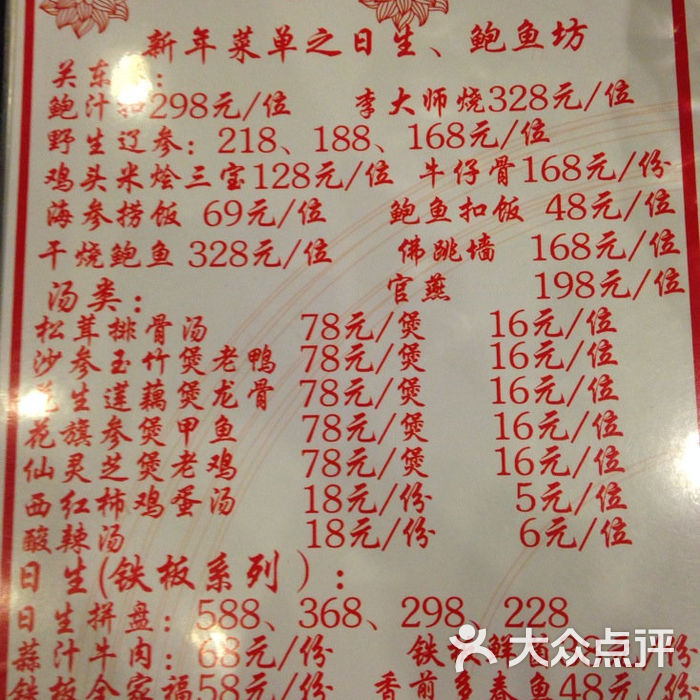 新年菜单之日生、鲍鱼坊
关东:
鲍汁扣298元/位 李大师烧328元/位
野生辽参: 218、188、168元/位
鸡头米烩三宝128元/位 牛仔骨168元/份
海参捞饭 69元/位 鲍鱼扣饭 48元/位
干烧鲍鱼 328元/位 佛跳墙 168元/位
汤类: 官燕 198元/位
松茸排骨汤 78元/煲 16元/位
沙参玉竹煲老鸭 78元/煲 16元/位
花生莲藕煲龙骨 78元/煲 16元/位
花旗参煲甲鱼 78元/煲 16元/位
仙灵芝煲老鸡 78元/煲 16元/位
西红柿鸡蛋汤 18元/份 5元/位
酸辣汤 18元/份 6元/位
日生(铁板系列):
日生拼盘: 588、368、298、228
蒜汁牛肉: 68元/份 铁 鲜
铁板全家福58元/份 香煎多春鱼48元/份
大众点评